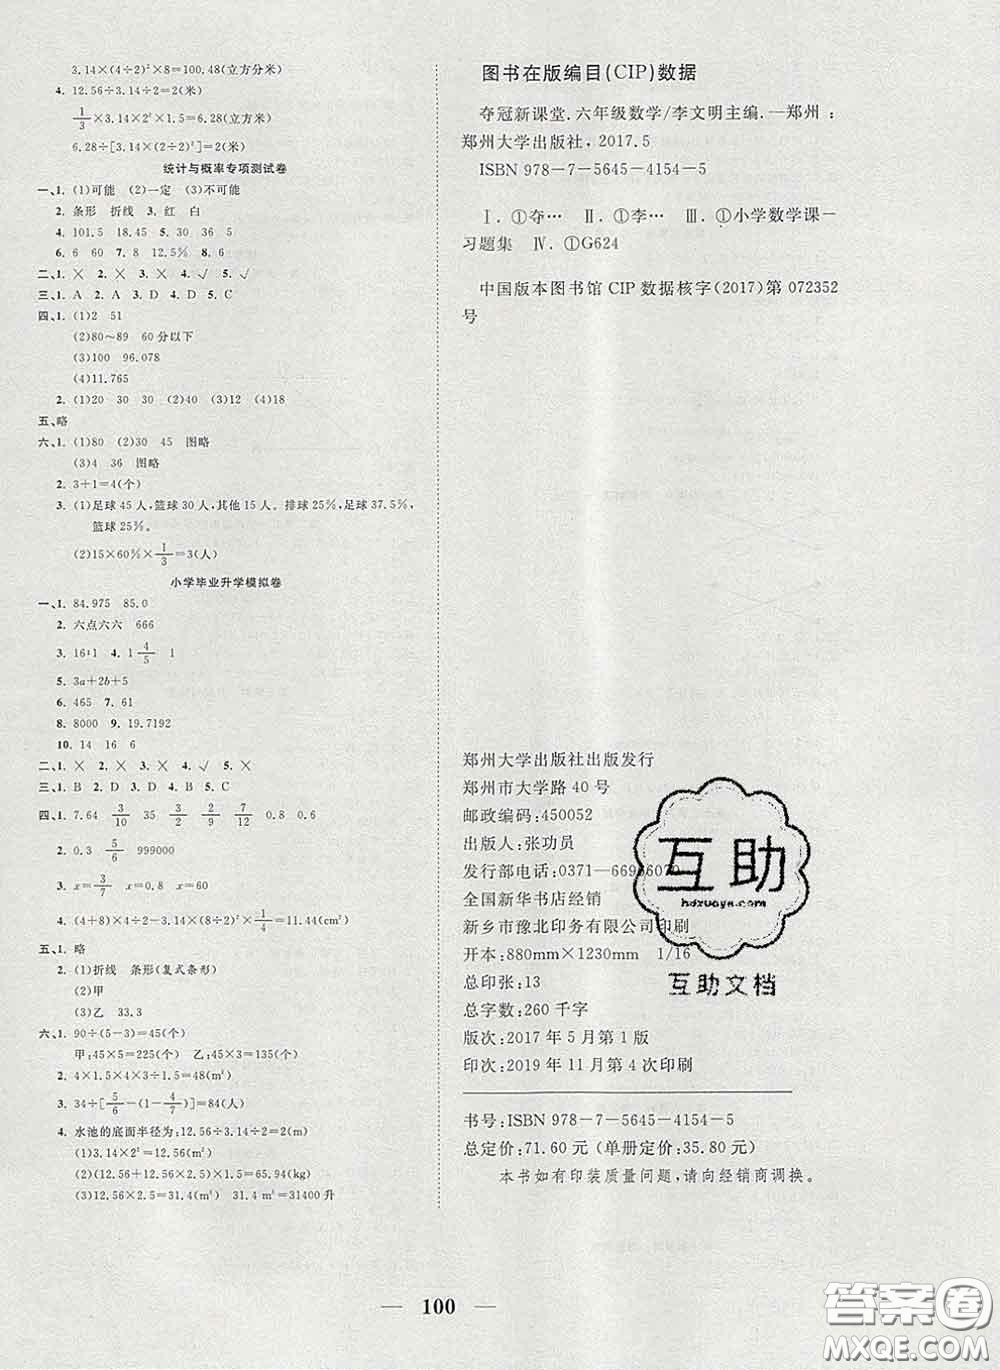 3.14×(4÷2)²×8=100.48(立方分米)
4. 12.56÷3.14÷2=2(米)
1/3×3.14×2²×1.5=6.28(立方米)
6.28÷[3.14×(2÷2)²]=2(米)
统计与概率专项测试卷
一、1. (1)可能 (2)一定 (3)不可能
2. 条形 折线 3. 红 白
4. 101.5 18.45 5. 92.5 95
6. 6 60 7. 120 12.5% 8. 6
二、1. × 2. × 3. × 4. √ 5. √
三、1. A 2. A 3. D 4. D 5. C
四、1. (1)2 51
(2)80~89 60分以下
(3)100 96.078
(4)11.765
2. (1)20 30 30 (2)40 (3)12 (4)18
五、略
六、1. (1)80 (2)30 45 图略
(3)4 36 图略
2. 3+1=4(个)
3. (1)足球45人,篮球30人,其他15人。排球25%,足球37.5%,
篮球25%。
(2)15×60%×1/3=3(人)
小学毕业升学模拟卷
一、1. 84.975 85.0
2. 六点六六 666
3. 16∶1 4. 1 4/5 1
5. 3a+2b+5
6. 465 7. 61
8. 8000 9. 19.7192
10. 14 16 6
二、1. × 2. × 3. × 4. √ 5. ×
三、1. B 2. D 3. A 4. B 5. C
四、1. 7.64 3/10 35 3/2 2/9 7/12 0.8 113
2. 0.3 5/6 999000
3. x=3/7 x=0.8 x=60
4. (4+8)×4÷2-3.14×(8÷2)²×1/4=11.44(cm²)
五、1. 略
2. (1)折线 条形(复式条形)
(2)甲
(3)乙 33.3
六、1. 90÷(5-3)=45(个)
甲:45×5=225(个) 乙:45×3=135(个)
2. 4×1.5×4×3÷1.5=48(m)
3. 34÷[5/6-(1-4/7)]=84(人)
4. 水池的底面半径为:12.56÷3.14÷2=2(m)
(1)3.14×2²=12.56(m²)
(2)(12.56+12.56×2.5)×1.5=65.94(kg)
(3)12.56×2.5=31.4(m³) 31.4m³=31400升
图书在版编目(CIP)数据
夺冠新课堂.六年级数学/李文明主编.—郑州:
郑州大学出版社,2017.5
ISBN 978-7-5645-4154-5
Ⅰ.①夺… Ⅱ.①李… Ⅲ.①小学数学课-
习题集 Ⅳ.①G624
中国版本图书馆CIP数据核字(2017)第072352
号
郑州大学出版社出版发行
郑州市大学路40号
邮政编码:450052
出版人:张功员
发行部电话:0371-66966070
全国新华书店经销
新乡市豫北印务有限公司印刷
开本:880mm×1230mm 1/16
总印张:13
总字数:260千字
版次:2017年5月第1版
印次:2019年11月第4次印刷
书号:ISBN 978-7-5645-4154-5
总定价:71.60元(单册定价:35.80元)
本书如有印装质量问题,请向经销商调换。
互助
hdzuoye.com
互助文档
— 100 —
答案圈
MXQE.COM